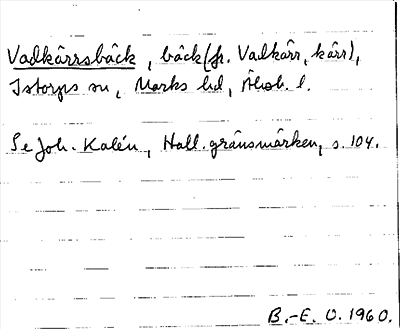 Vadkärrsbäck, bäck (fr. Vadkärr, kärr),
Istorps sn, Marks hd, Älvsb. l.
Se Joh. Kalén, Hall. gränsmärken, s. 104.
B.-E. O. 1960.